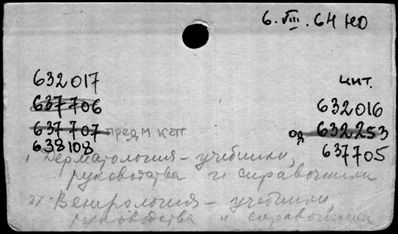 6. VIII. 64 НО
632017
чит.
637706
632016
637707 предм кат
од 632253
638108
637705
1. Дерматология – учебники,
руководства и справочники
2. Венерология – учебники,
руководства и справочники